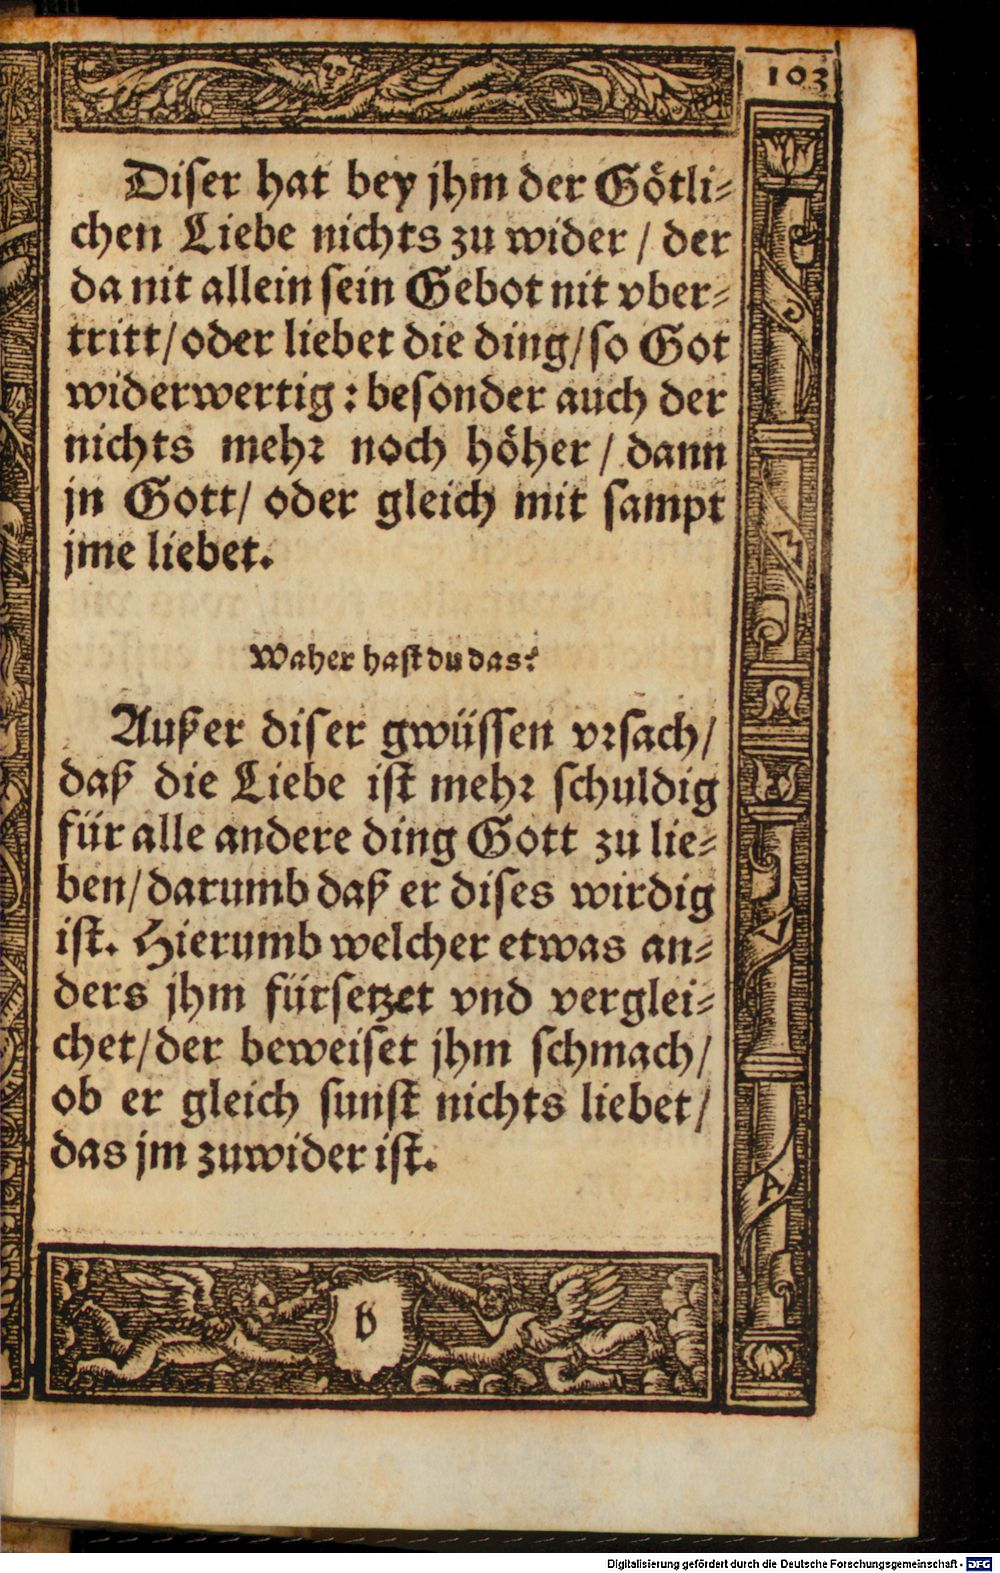 103
Diser hat bey jhm der Götli-
chen Liebe nichts zu wider / der
da nit allein sein Gebot nit vber-
tritt/oder liebet die ding/so Got
widerwertig: besonder auch der
nichts mehr noch höher / dann
jn Gott/ oder gleich mit sampt
jme liebet.
Waher hast du das?
Außer diser gwüssen vrsach/
daß die Liebe ist mehr schuldig
für alle andere ding Gott zu lie-
ben/darumb daß er dises wirdig
ist. Hierumb welcher etwas an-
ders jhm fürsetzet vnd verglei-
chet/der beweiset jhm schmach/
ob er gleich sunst nichts liebet/
das jm zuwider ist.
M
A
Digitalisierung gefördert durch die Deutsche Forschungsgemeinschaft - DFG